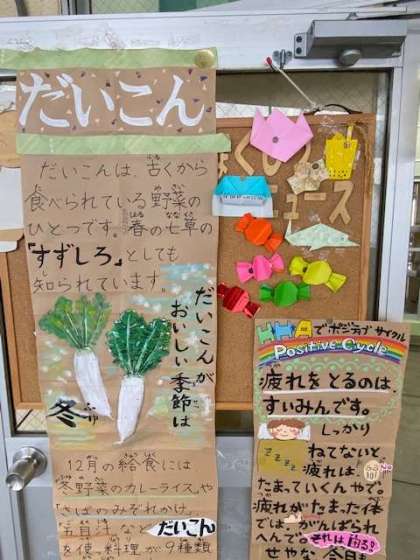 だいこん
だいこんは、古くから
食べられている野菜の
ひとつです。春の七草の
「すずしろ」としても
知られています。
だいこんが
おいしい季節は
冬
ふゆ
12月の給食には
冬野菜のカレーライス、や
さばのみぞれかけ、
など だいこん
を使う料理が9種類
ュース
でポジティブサイクル
Positive Cycle
疲れをとるのは、
すいみんです。
しっかり
zzzz
ねてないと
疲れは
たまっていくんやで。
疲れがたまった体
では、がんばられ
へんで。それは困る!
せやな、